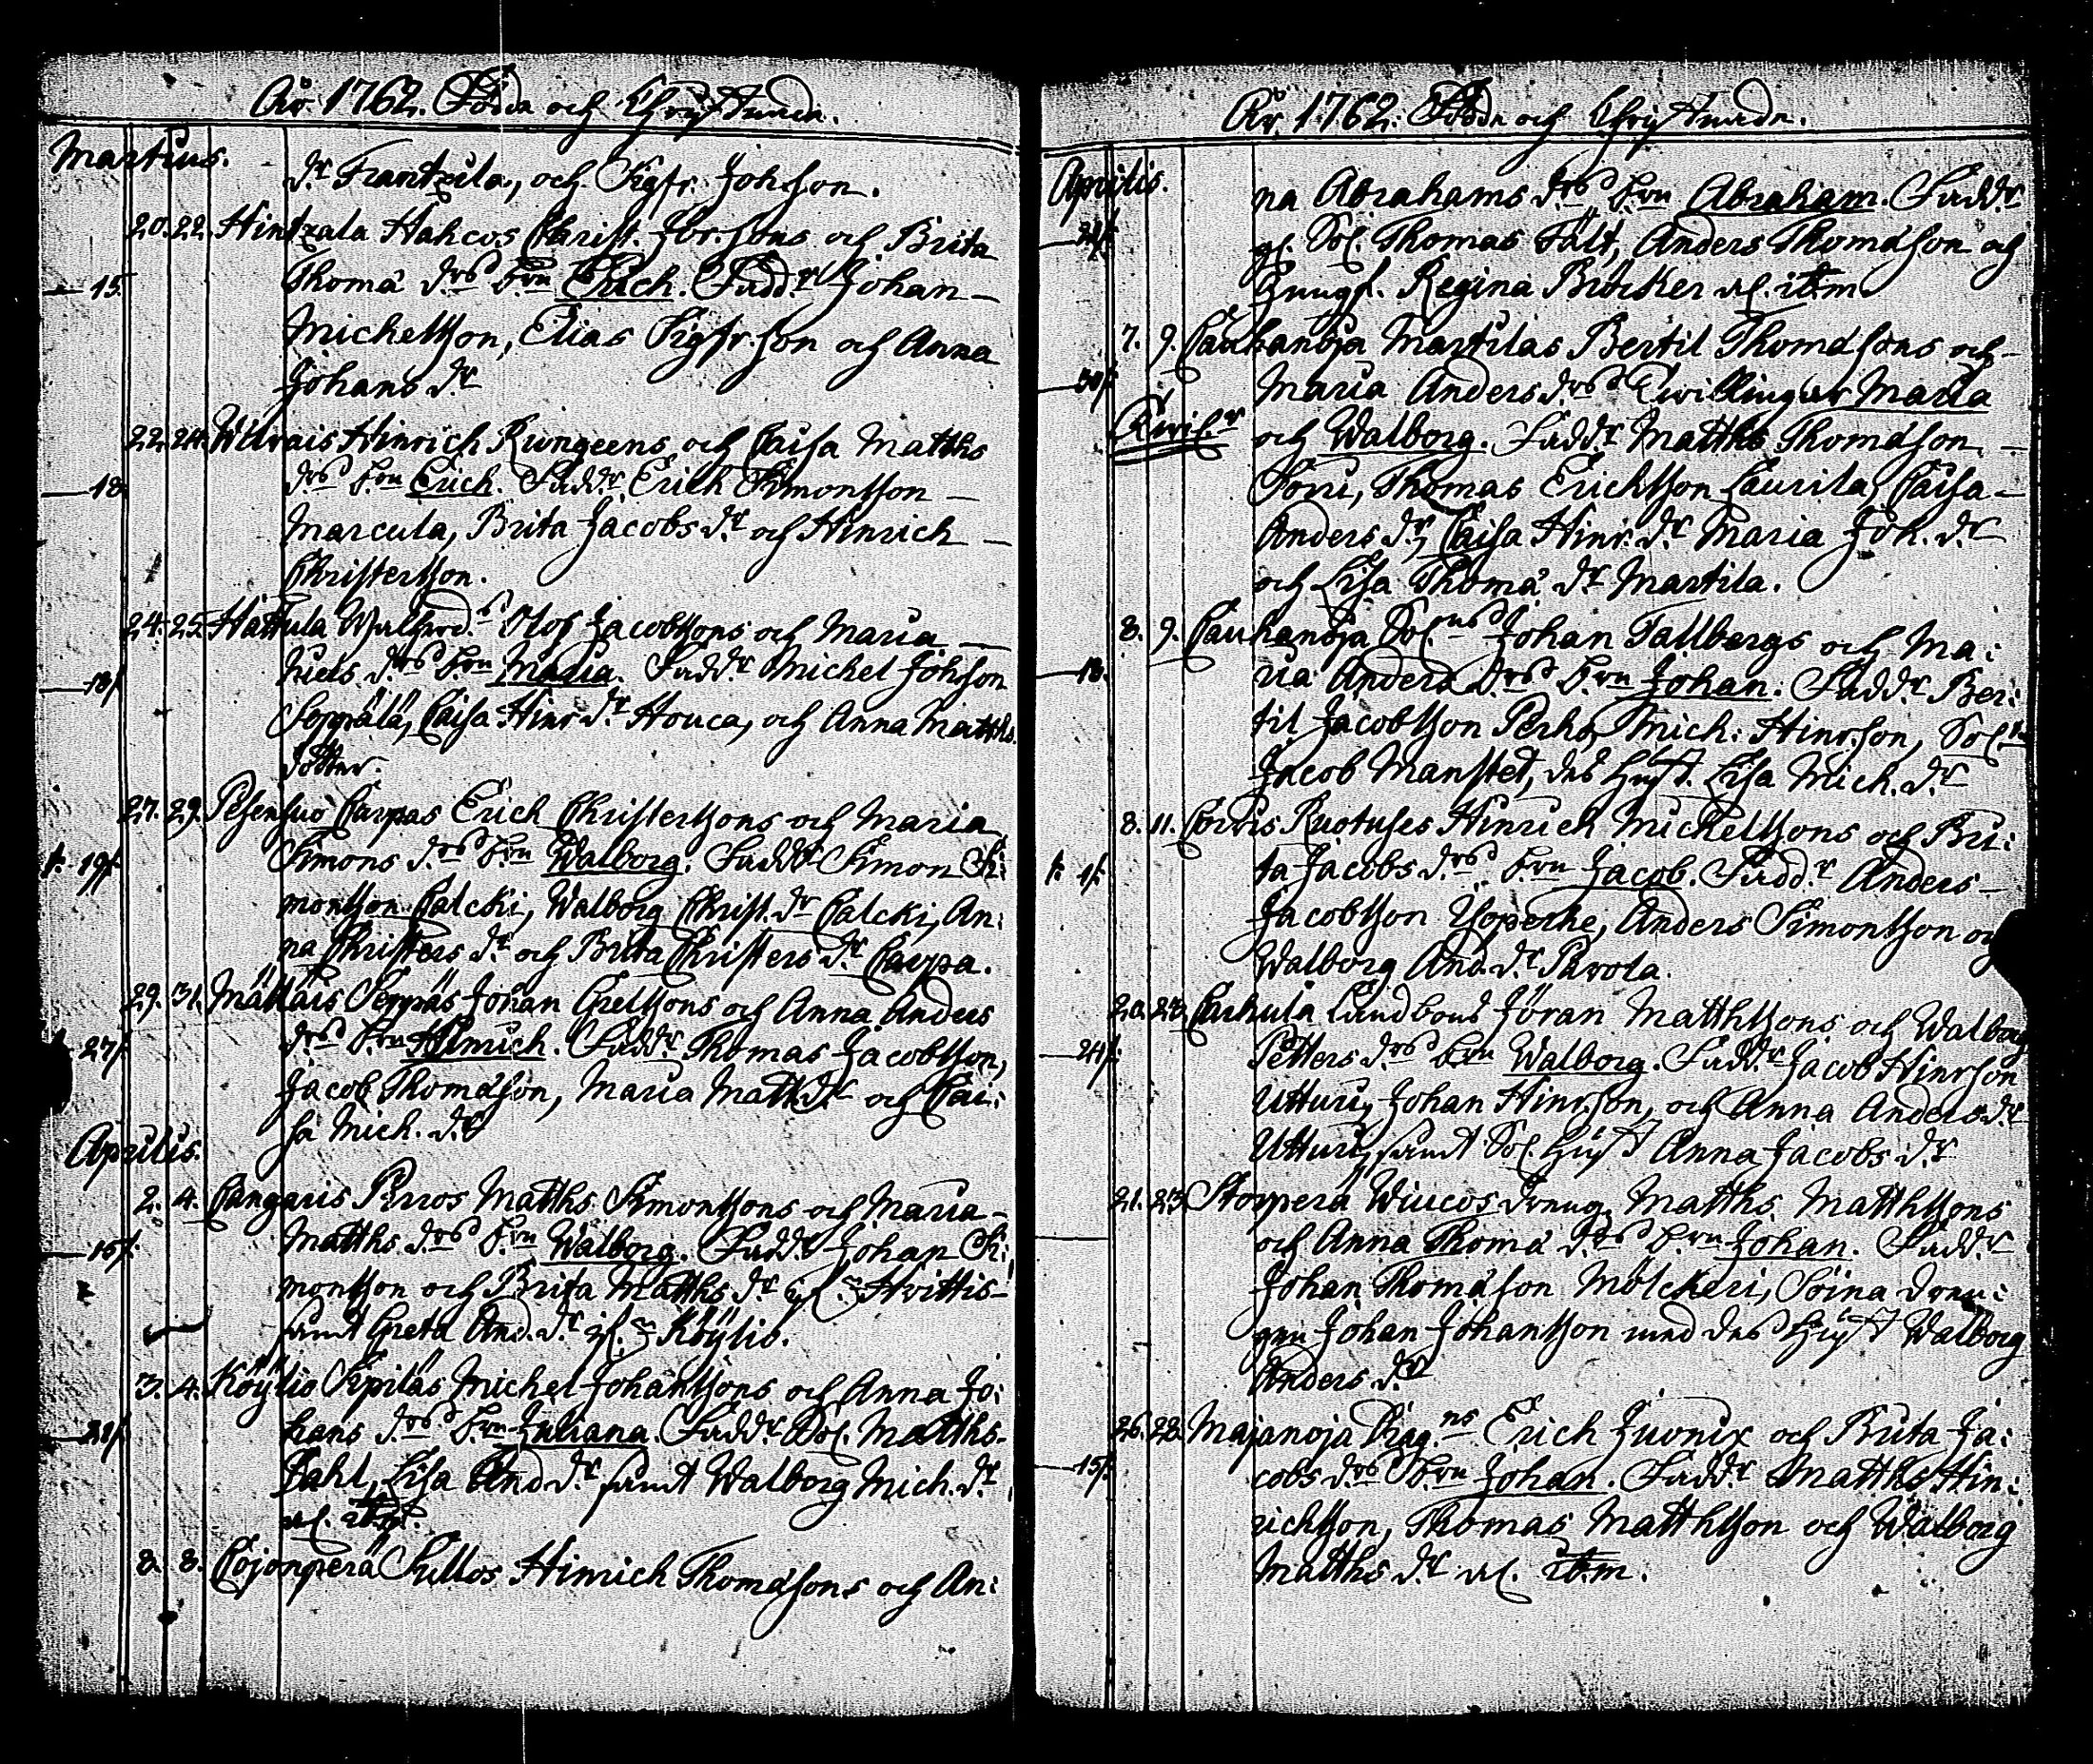 År 1762. Födda och Christnade.
Martius.
dr Frantzila, och Sigfr. Johsson.
20. 22. Hintzala Hahcos Christ. Jör.sons och Brita
15. Thomæ drs brn Erich. Faddr Johan
Micheltson, Elias Sigfr.son och Anna
Johans dr
22. 24. Wilvais Hinrich Rungeens och Caisa Matths
18 drs brn Erich. Faddr. Erich Simontson
Marcula, Brita Jacobs dr och Hinrich
Christertson.
24. 25. Hattula Olof Jacobtsons och Maria
18/ Niels drs brn Maria. Faddr Michel Johsson
Soppälä, Caisa Hinr dr Houca, och Anna Matths
dotter.
27. 29. Pesensuo Carpas Erich Christertsons och Maria
19/ Simons drs brn Walborg. Faddr Simon Si:
montson Calcki, Walborg Christ. dr Calcki, An:
na Christers dr och Brita Christers dr Carpa.
29. 31. Mällais Seppäs Johan Greltsons och Anna Anders
27/ drs brn Hinrich. Faddr Thomas Jacobtson,
Jacob Thomæson, Maria Matts dr och Cai:
sa Mich. dr
Aprilis.
2. 4. Cangaris Perros Matths Simontsons och Maria
Matths drs brn Walborg. Faddr Johan Si:
montson och Brita Matths dr Hvittis
samt Greta And. dr Köylio.
3. 4. Köylio Sipilas Michel Johantsons och Anna Jo:
21/ hans drs brn Juliana. Faddr Sol. Matths
Dahl, Lisa And dr samt Walborg Mich. dr
8. 8. Cojonperä Sillos Hinrich Thomæsons och An:
År 1762. Födde och Christnade.
Aprilis.
na Abrahams drs brn Abraham. Faddr
Sol. Thomas Fält, Anders Thomæson och
Jungf. Regina Bröcker
7. 9. Cauhanoja Martilas Bertil Thomæsons och
30/ Maria Anders drs Twillingar Maria
Twil.r och Walborg. Faddr Matths Thomæson
Soini, Thomas Erichtson Laurila, Caisa
Anders dr, Caisa Hinr. dr Maria Joh. dr
och Lisa Thomæ dr Martila.
8. 9. Cauhanoja Sol.ns Johan Tallbergs och Ma:
18. ria Anders drs brn Johan. Faddr Ber:
til Jacobtson Perho, Mich. Hinr.son, Sol.tn
Jacob Manstet, des Hust. Lisa Mich. dr
8. 11. Corvis Ruotuses Hinrich Micheltsons och Bri:
ta Jacobs drs brn Jacob. Faddr Anders
Jacobtson Yloperhe, Anders Simontson och
Walborg And. dr Pavola.
20. Carhula Landbons Jöran Matthtsons och Walborg
24/ Petters drs brn Walborg. Faddr Jacob Hinrson
Utturi, Johan Hinr.son, och Anna Anders dr
Utturi, samt Sol. Hust Anna Jacobs dr
21. 23. Storperä Wiucos Dreng. Matths Matthtsons
och Anna Thomæ drs brn Johan. Faddr
Johan Thomæson Mölckeri, Soina Dren:
gen Johan Johantson med des Hust Walborg
Anders dr
26. 28. Majanoja Erich Juonix och Brita Ja:
15/ cobs drs brn Johan. Faddr Matths Hin:
richtson, Thomas Matthtson och Walborg
Matths dr